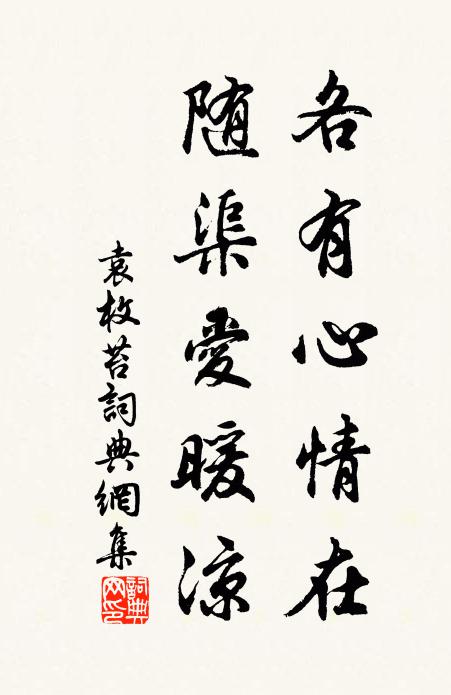 各有心情在
随渠愛暖涼
袁枚苔詞典網集
詞典网印